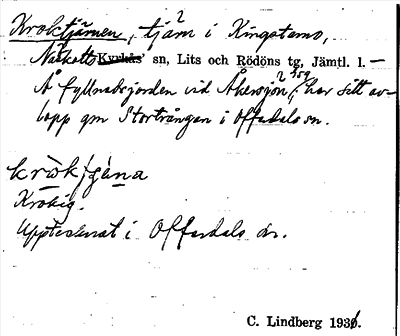 Kroktjärnen, tjärn i Kingstamo,
Näskotts Kyrkås' sn, Lits och Rödöns tg, Jämtl. l. —
Å fyllnadsjorden vid Åkersjön, har sitt av-
lopp gm Stortrången i Offerdals sn.
krok/
Krokig.
Upptecknat i Offerdals sn.
C. Lindberg 1936.